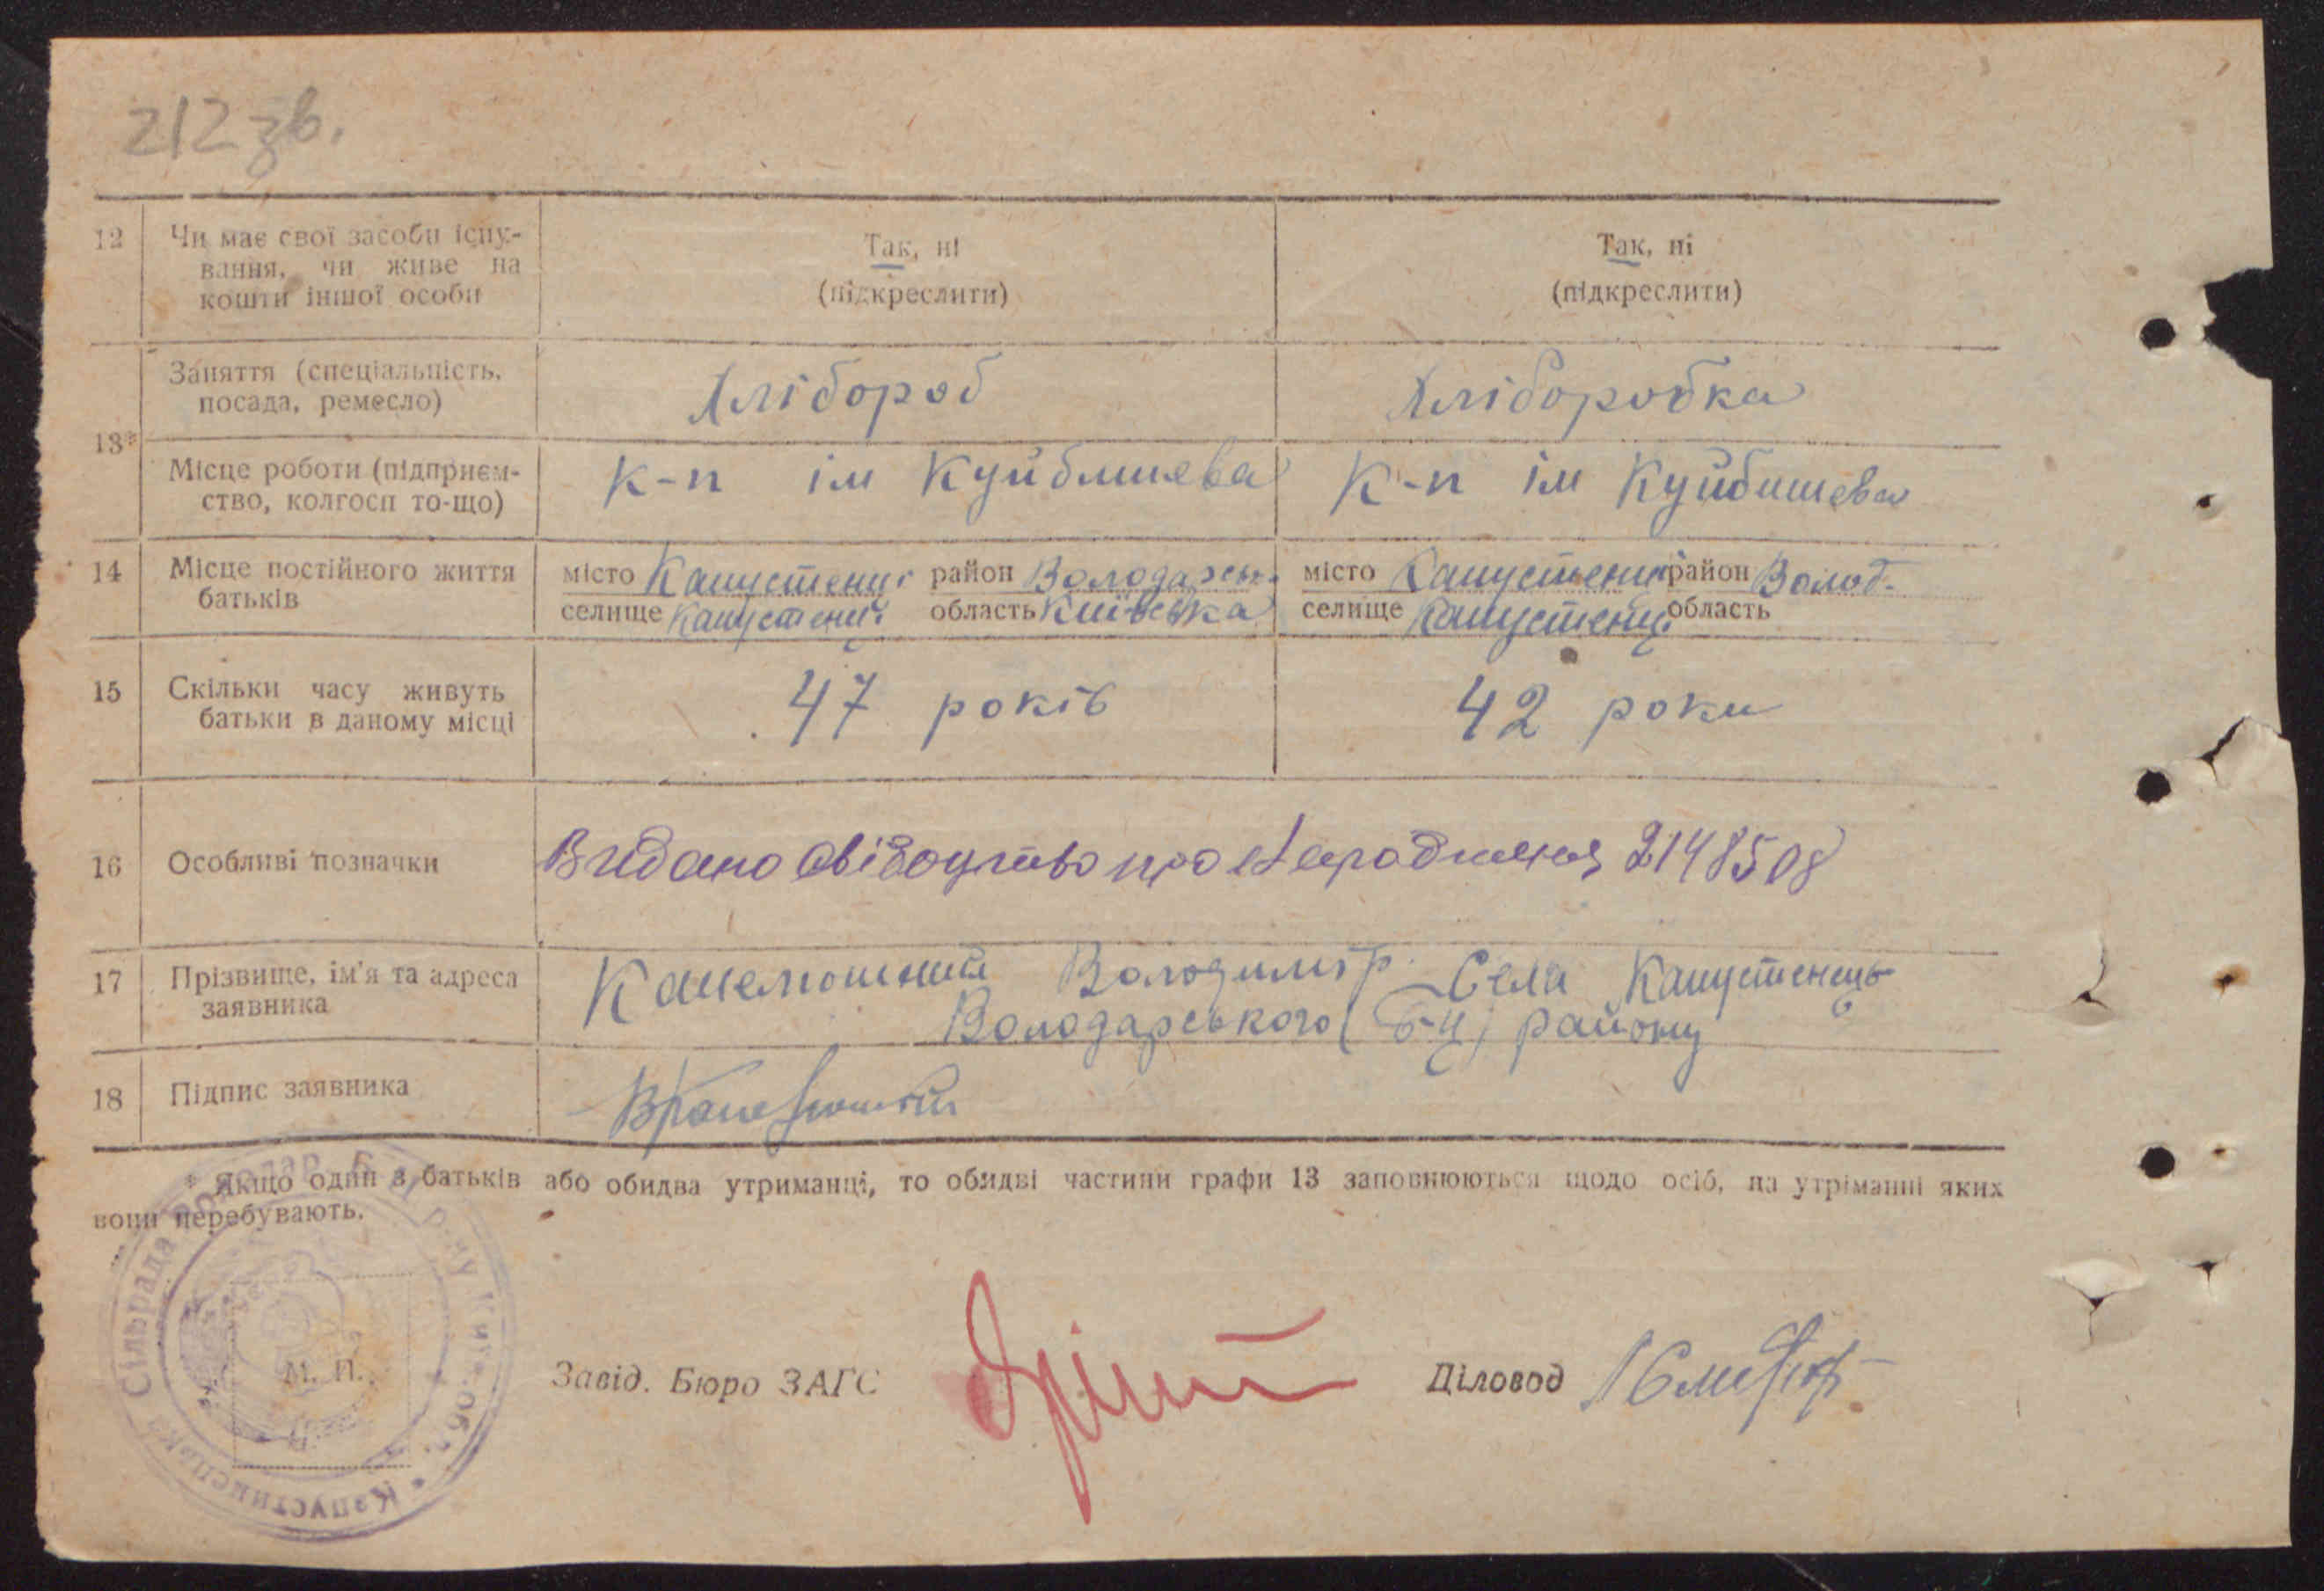 212 зв.
12 Чи має свої засоби існу-
вання, чи живе на
кошти іншої особи
Так, ні
(підкреслити)
Так, ні
(підкреслити)
13*
Заняття (спеціальність,
посада, ремесло)
Хлібороб
Хлібообка
Місце роботи (підприєм-
ство, колгосп то-що)
К-п ім Куйбишева
К-п ім Куйбишева
14 Місце постійного життя
батьків
місто Капустенці район Володарськ.
селище Капустенці область Київська
місто Капустенці район Волод.
селище Капустенці область
15 Скільки часу живуть
батьки в даному місці
47 років
42 роки
16 Особливі позначки
Видано свідоцтво про народження 2148508
17 Прізвище, ім'я та адреса
заявника
Володимір Села Капустенець
Володарського (б-ц) району
18 Підпис заявника
* Якщо один з батьків або обидва утриманці, то обидві частини графи 13 заповнюються щодо осіб, на утріманні яких
вони перебувають.
М. П.
Завід. Бюро ЗАГС
Діловод
Капустинська Сільрада Володар. Б-Ц р-ну Київ. обл.